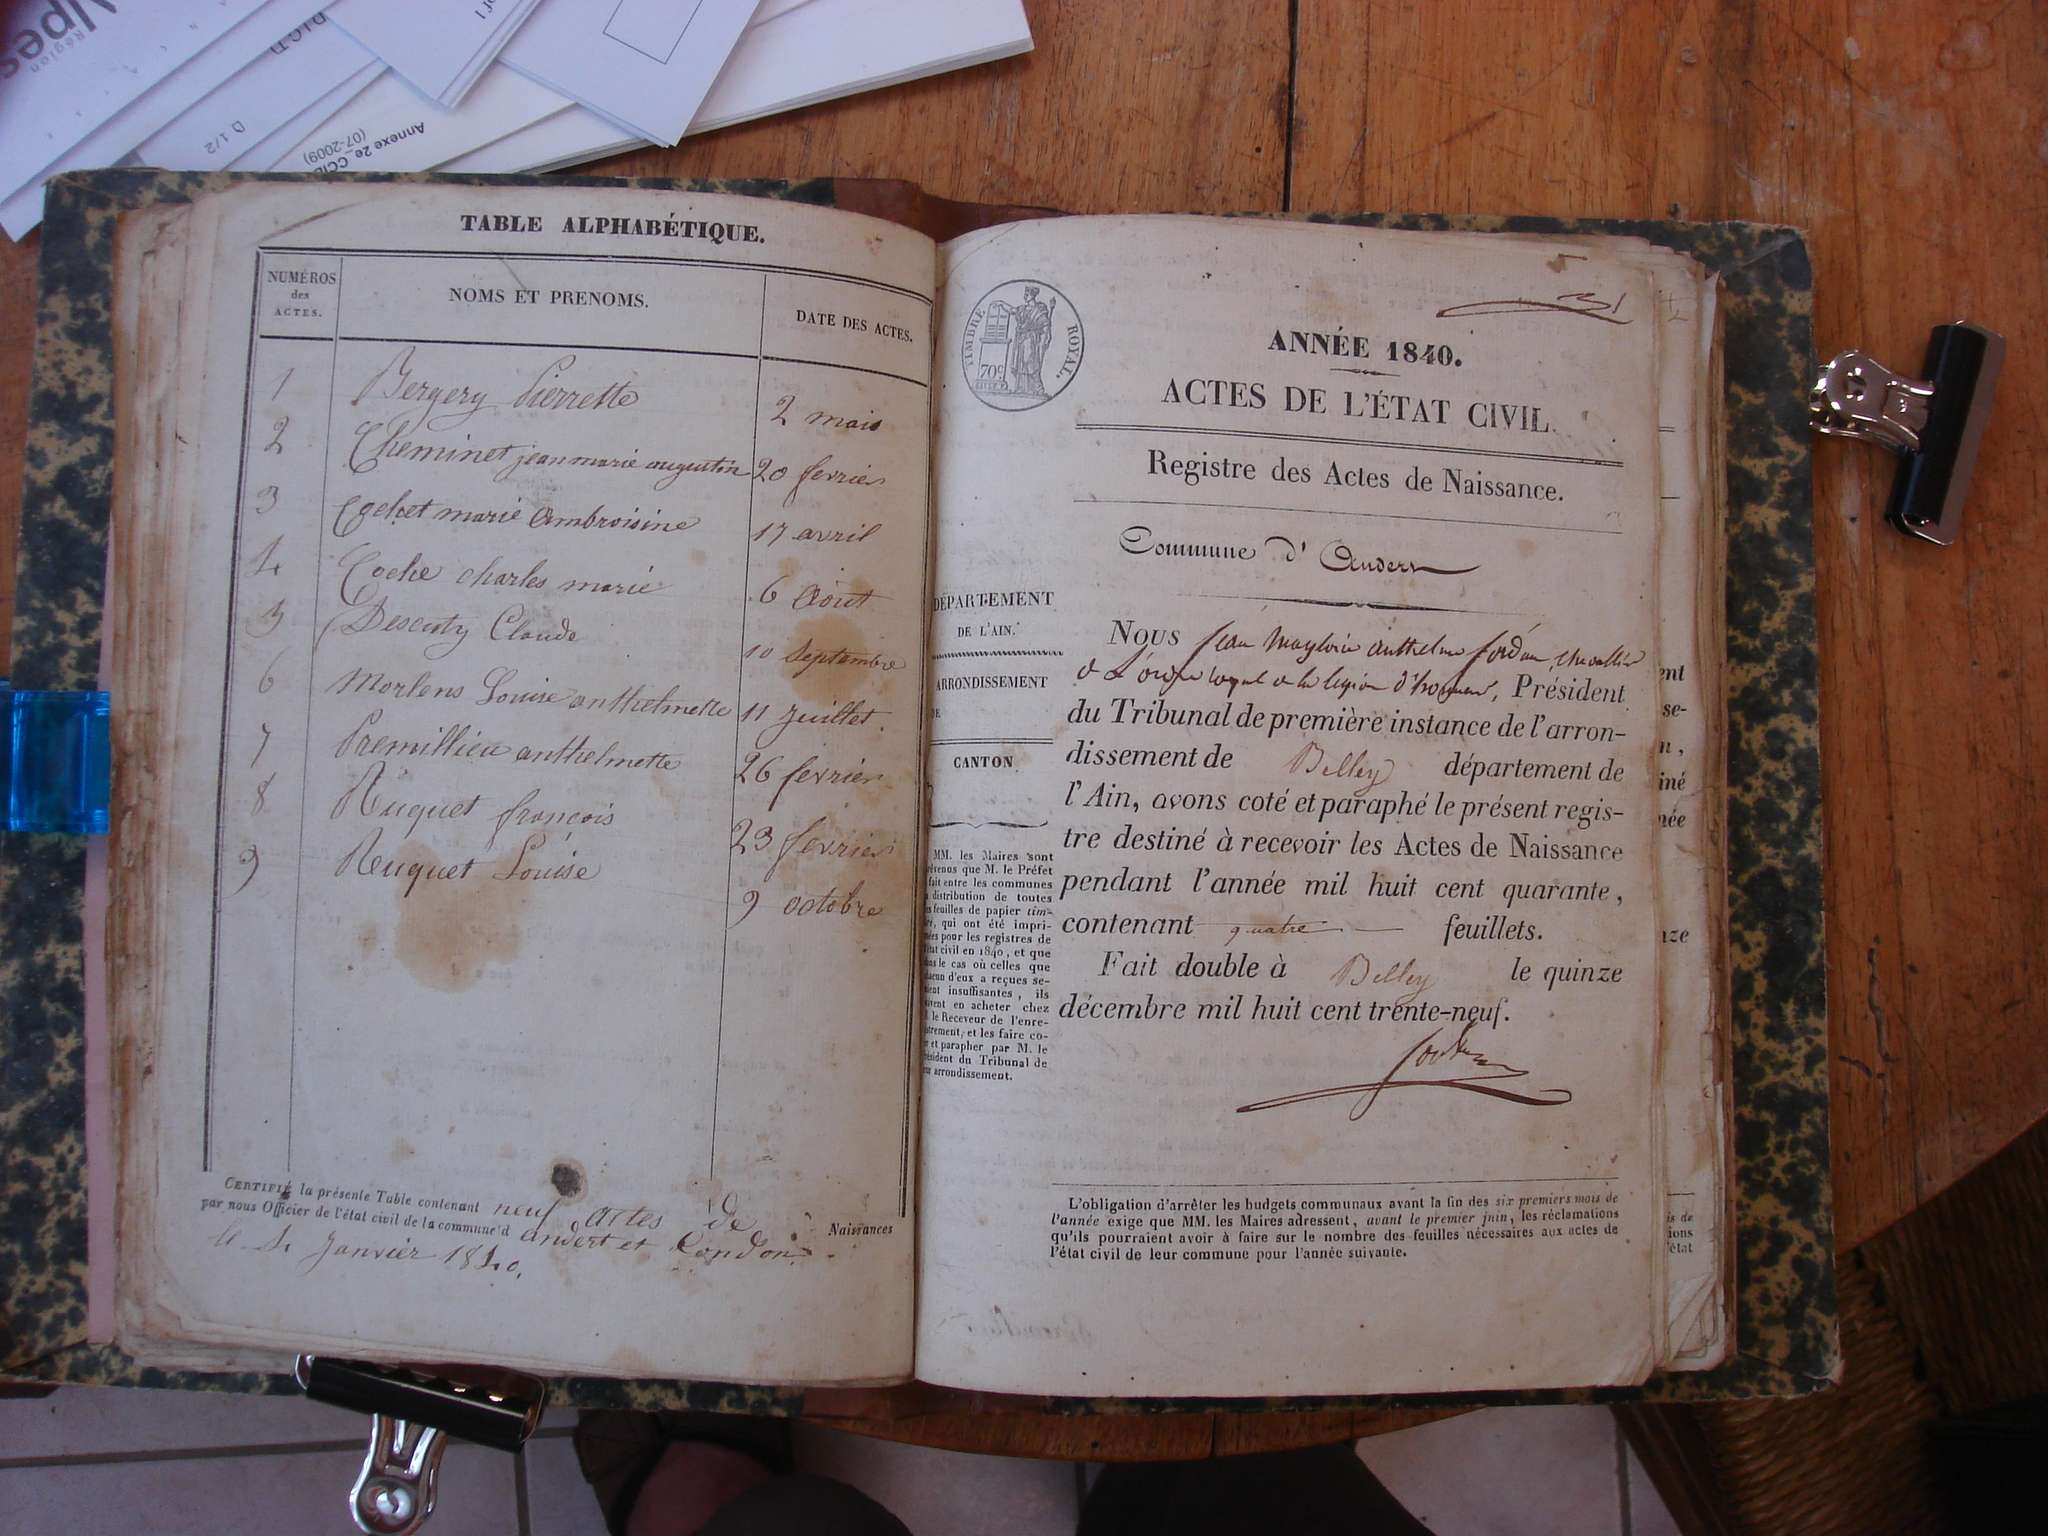 Alpes
Région
D 1/2
Annexe 2e CCID
(07-2009)
TABLE ALPHABÉTIQUE.
NUMÉROS
des
ACTES.
NOMS ET PRENOMS.
DATE DES ACTES.
1 Bergery Pierrette 2 mais
2 Cheminet jean marie augustin 20 fevrier
3 Cochet marie Ambroisine 17 avril
4 Coche charles marie 6 Aout
5 Descuty Claude 10 Septembre
6 Morlens Louise anthelmette 11 Juillet
7 Premillieu anthelmette 26 fevrier
8 Ruquet francois 23 fevrier
9 Ruquet Louise 9 octobre
CERTIFIÉ la présente Table contenant neuf actes de Naissances
par nous Officier de l'état civil de la commune d andert et Condon
le 4 Janvier 1840.
TIMBRE ROYAL.
70c
31
ANNÉE 1840.
ACTES DE L'ÉTAT CIVIL.
Registre des Actes de Naissance.
Commune d' Andert
DÉPARTEMENT
DE L'AIN.
ARRONDISSEMENT
DE
CANTON
MM. les Maires sont
prévenus que M. le Préfet
fait entre les communes
distribution de toutes
feuilles de papier tim-
bré, qui ont été impri-
mées pour les registres de
l'état civil en 1840, et que
dans le cas où celles que
chacun d'eux a reçues se-
raient insuffisantes, ils
doivent en acheter chez
le Receveur de l'enre-
gistrement, et les faire co-
ter et parapher par M. le
Président du Tribunal de
leur arrondissement.
Nous Jean anthelme Jordan, chevallier
de L'ordre royal de la legion d'honneur, Président
du Tribunal de première instance de l'arron-
dissement de Belley département de
l'Ain, avons coté et paraphé le présent regis-
tre destiné à recevoir les Actes de Naissance
pendant l'année mil huit cent quarante,
contenant quatre feuillets.
Fait double à Belley le quinze
décembre mil huit cent trente-neuf.
Jordan
L'obligation d'arrêter les budgets communaux avant la fin des six premiers mois de
l'année exige que MM. les Maires adressent, avant le premier juin, les réclamations
qu'ils pourraient avoir à faire sur le nombre des feuilles nécessaires aux actes de
l'état civil de leur commune pour l'année suivante.